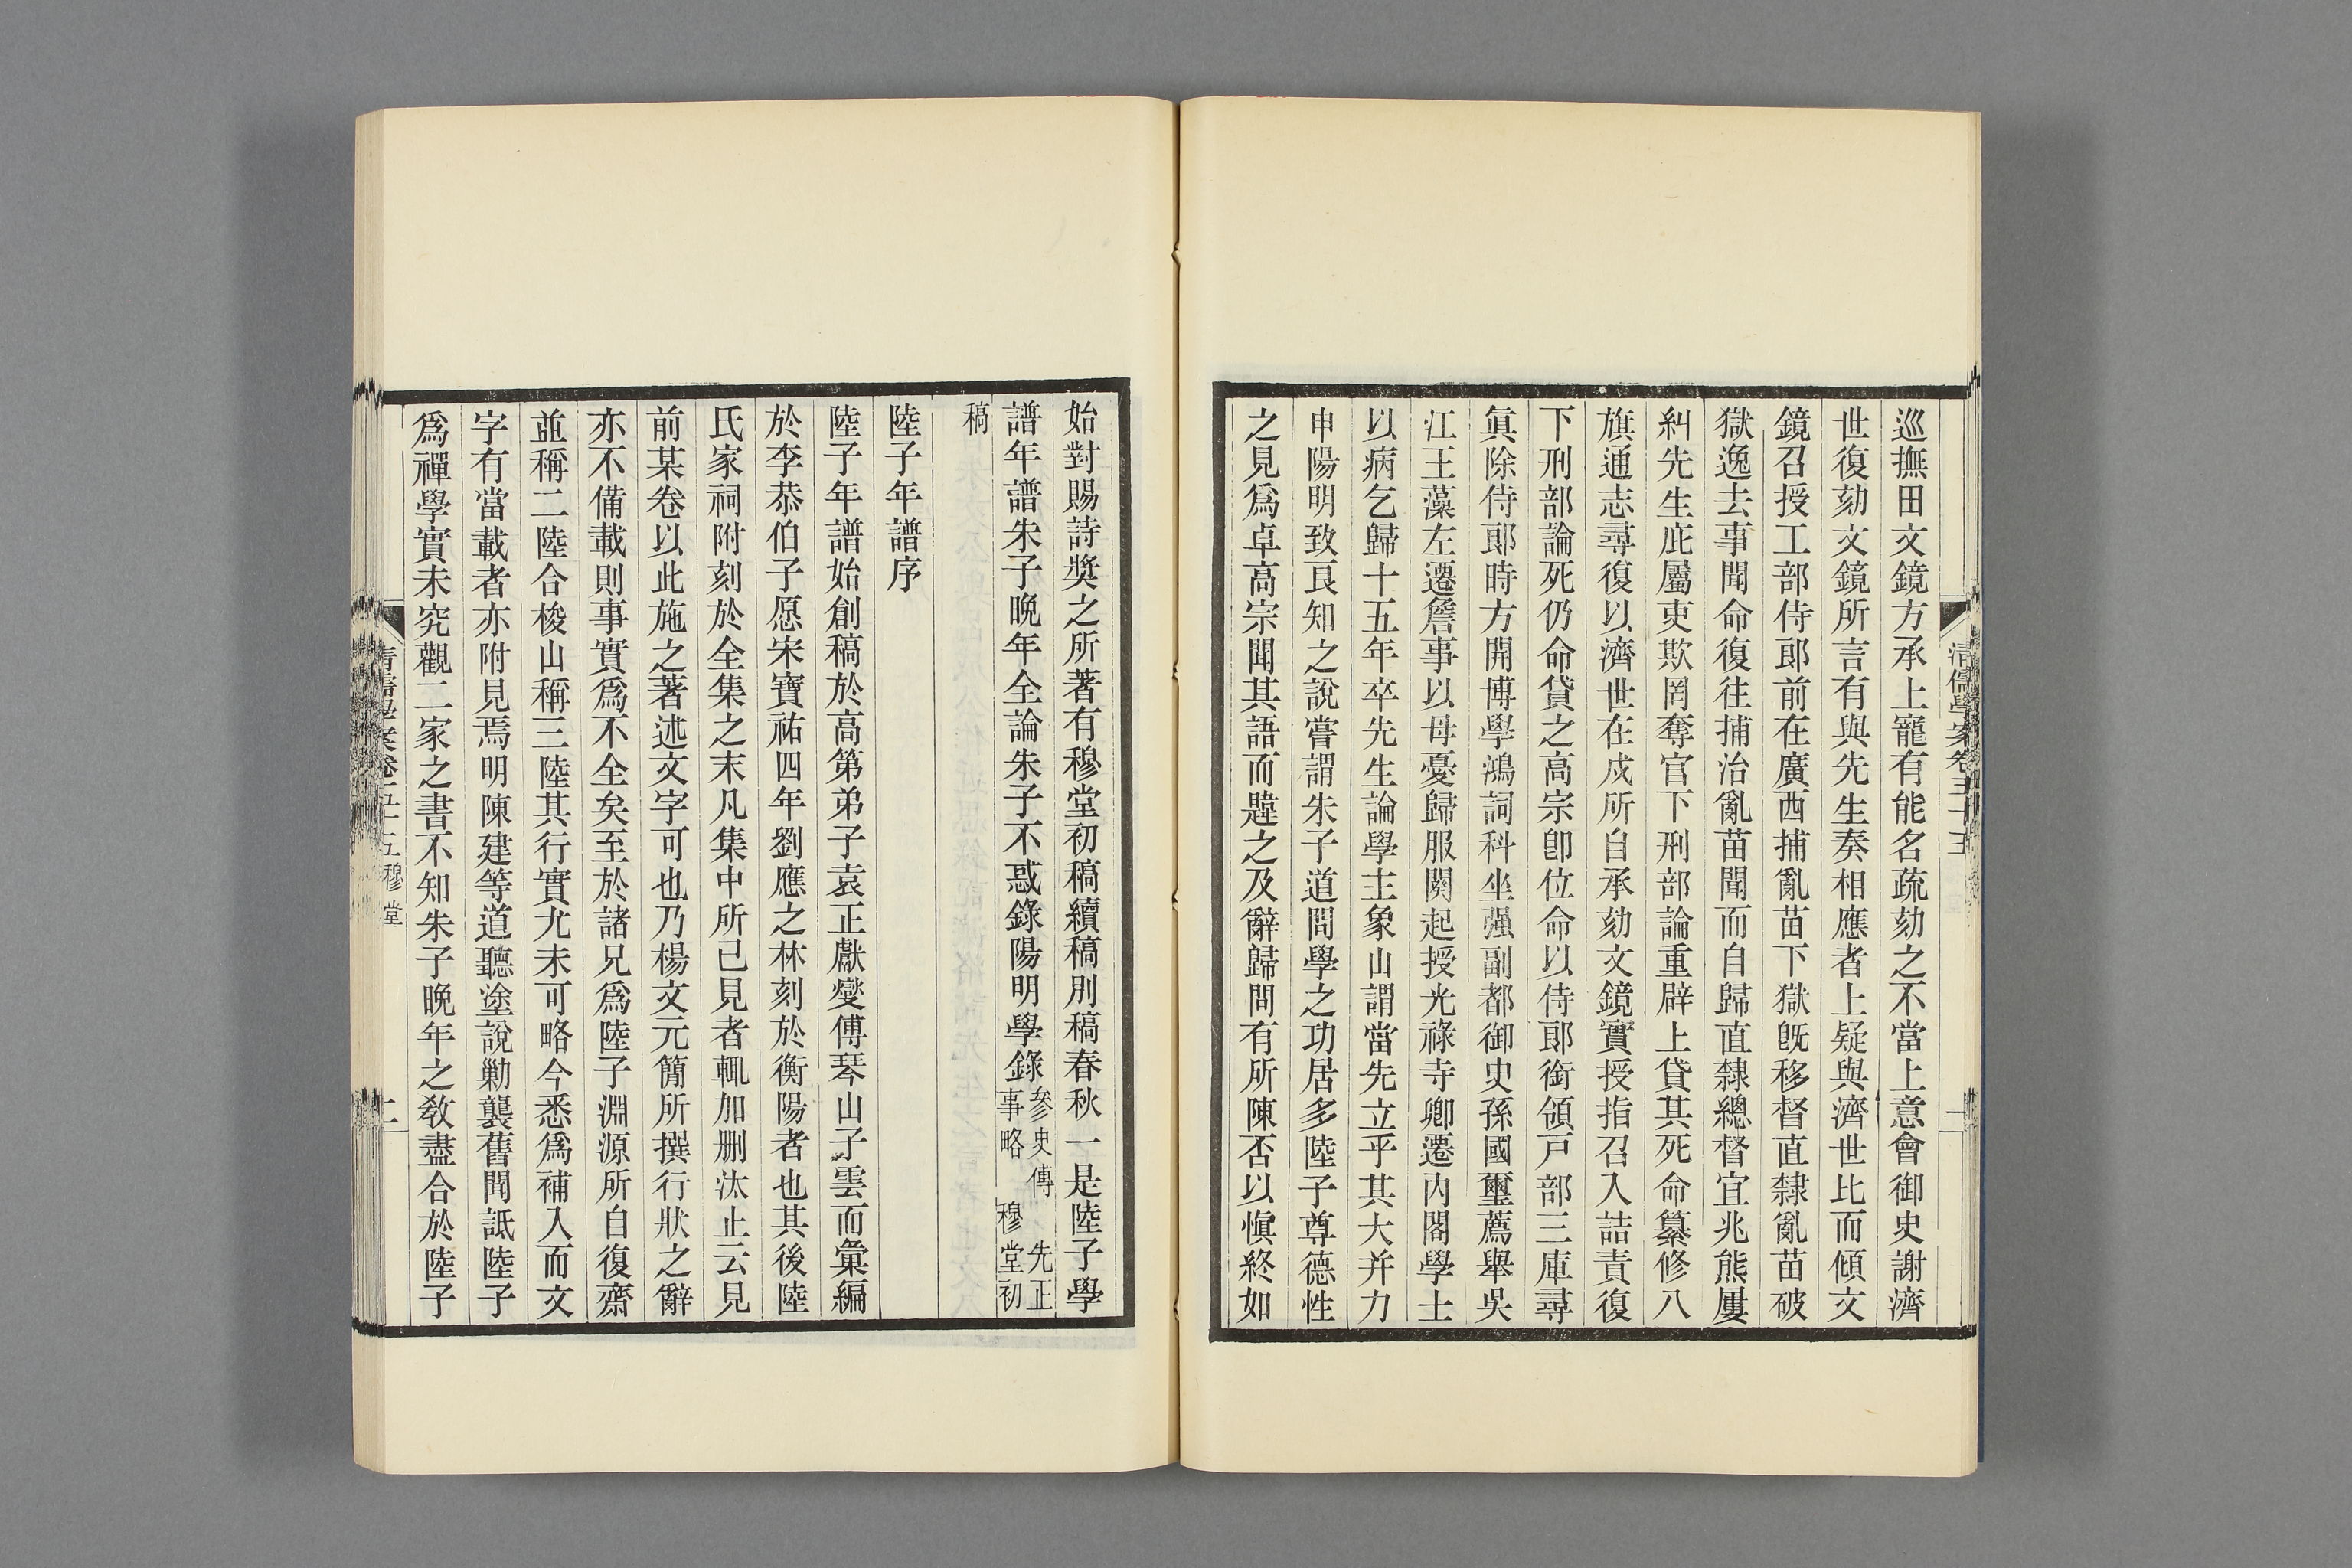 清儒學案卷五十五
二
巡撫田文鏡方承上寵有能名疏劾之不當上意會御史謝濟
世復劾文鏡所言有與先生奏相應者上疑與濟世比而傾文
鏡召授工部侍郞前在廣西捕亂苗下獄旣移督直隸亂苗破
獄逸去事聞命復往捕治亂苗聞而自歸直隸總督宜兆熊屢
糾先生庇屬吏欺罔奪官下刑部論重辟上貸其死命纂修八
旗通志尋復以濟世在戍所自承劾文鏡實授指召入詰責復
下刑部論死仍命貸之高宗卽位命以侍郞銜領戶部三庫尋
眞除侍郞時方開博學鴻詞科坐强副都御史孫國璽薦舉吳
江王藻左遷詹事以母憂歸服闋起授光祿寺卿遷內閣學士
以病乞歸十五年卒先生論學主象山謂當先立乎其大幷力
申陽明致良知之說嘗謂朱子道問學之功居多陸子尊德性
之見爲卓高宗聞其語而韙之及辭歸問有所陳否以愼終如
始對賜詩奬之所著有穆堂初稿續稿別稿春秋一是陸子學
譜年譜朱子晚年全論朱子不惑錄陽明學錄
參史傳　先正
事略　穆堂初
稿
陸子年譜序
陸子年譜始創稿於高第弟子袁正獻燮傅琴山子雲而彙編
於李恭伯子愿宋寶祐四年劉應之林刻於衡陽者也其後陸
氏家祠附刻於全集之末凡集中所已見者輒加删汰止云見
前某卷以此施之著述文字可也乃楊文元簡所撰行狀之辭
亦不備載則事實爲不全矣至於諸兄爲陸子淵源所自復齋
並稱二陸合梭山稱三陸其行實尤未可略今悉爲補入而文
字有當載者亦附見焉明陳建等道聽塗說勦襲舊聞詆陸子
爲禪學實未究觀二家之書不知朱子晚年之敎盡合於陸子
清儒學案卷五十五 穆堂
二